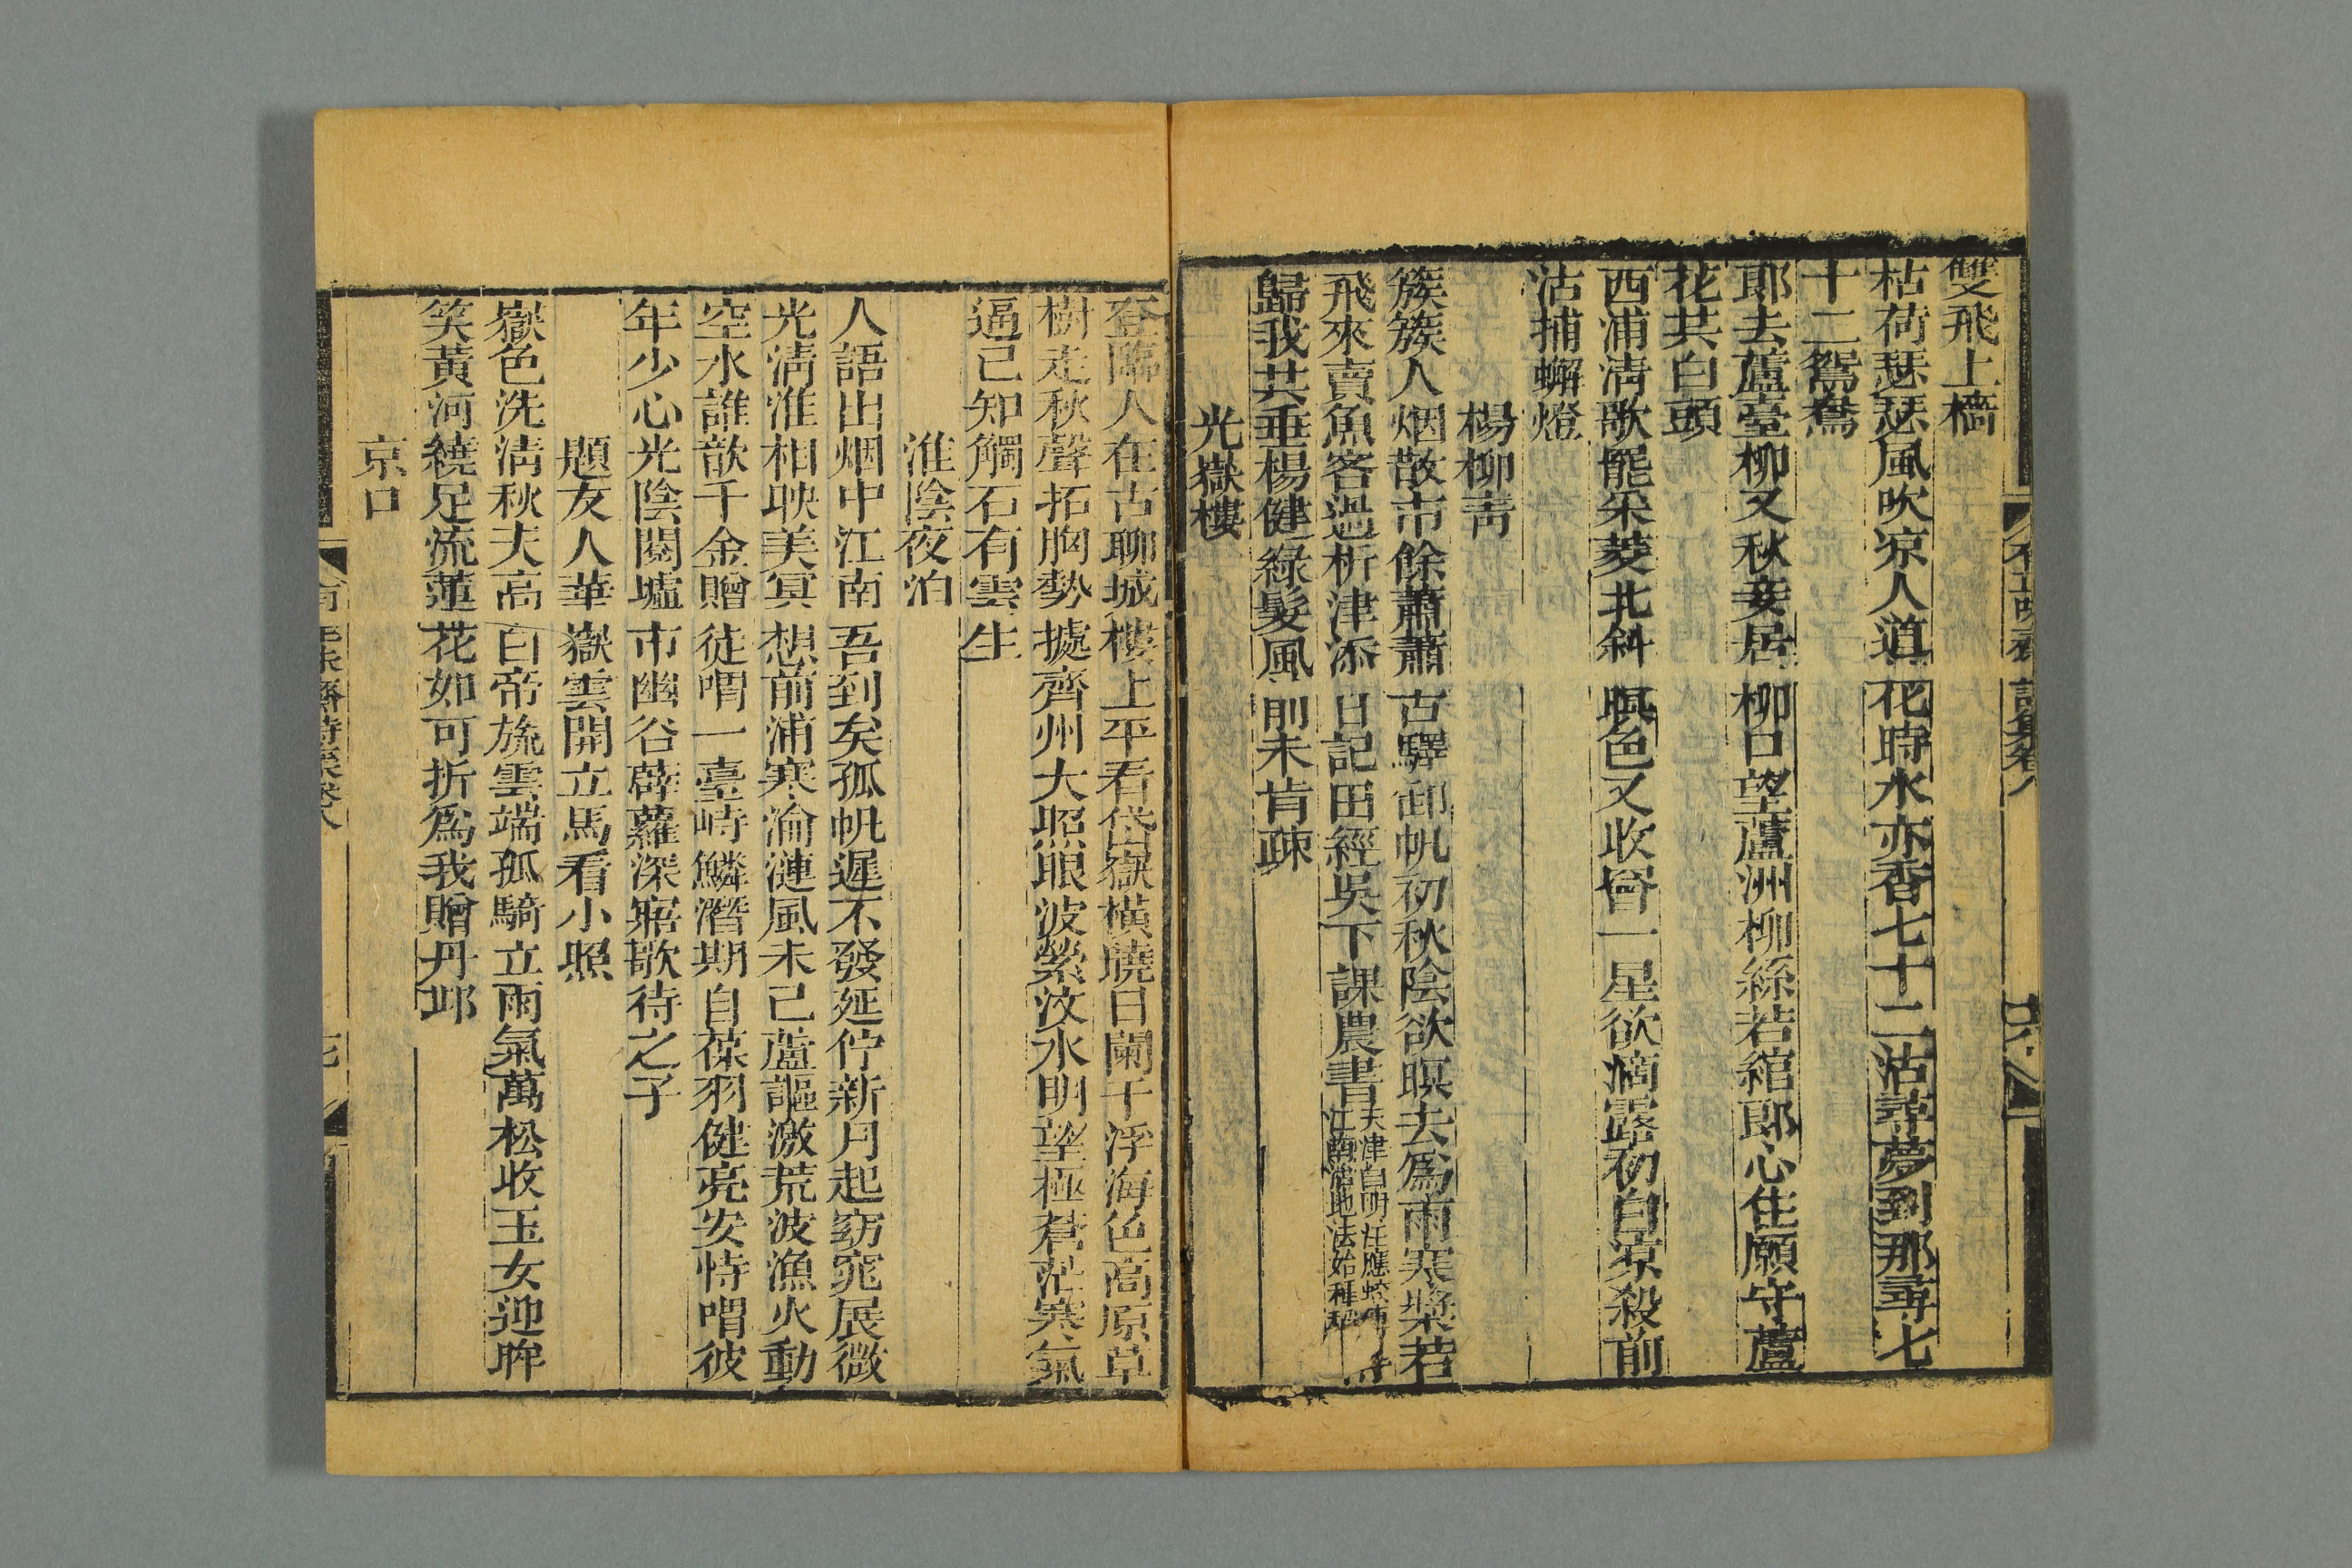 雙飛上橋
枯荷瑟瑟風吹涼人道花時水亦香七十二沽尋夢到那尋七
十二鴛鴦
郎去蘆臺柳又秋妾居柳口望蘆洲柳絲若綰郎心住願守蘆
花共白頭
西浦清歌罷采菱北斜暝色又收罾一星欲滴露初白涼殺前
沽捕蠏燈
楊柳靑
簇簇人烟散市餘蕭蕭古驛卸帆初秋陰欲暝去爲雨寒槳若
飛來賣魚客過析津添日記田經吳下課農書天津自明汪應蛟
江南治地法始種稻
歸我共垂楊健綠髮風前未肯疎
光嶽樓
登臨人在古聊城樓上平看岱嶽橫曉日闌干浮海色高原草
樹走秋聲拓胸勢據齊州大照眼波縈汶水明望極蒼茫寒氣
逼已知觸石有雲生
淮陰夜泊
人語出烟中江南吾到矣孤帆遲不發延佇新月起窈窕展微
光淸淮相映美冥想前浦寒淪漣風未已蘆謳激荒波漁火動
空水誰歆千金贈徒喟一臺峙鱗潛期自葆羽健亮安恃喟彼
年少心光陰閱墟市幽谷薜蘿深寤歌待之子
題友人華嶽雲開立馬看小照
嶽色洗清秋天高白帝旒雲端孤騎立雨氣萬松收玉女迎眸
笑黃河繞足流蓮花如可折爲我贈丹邱
京口